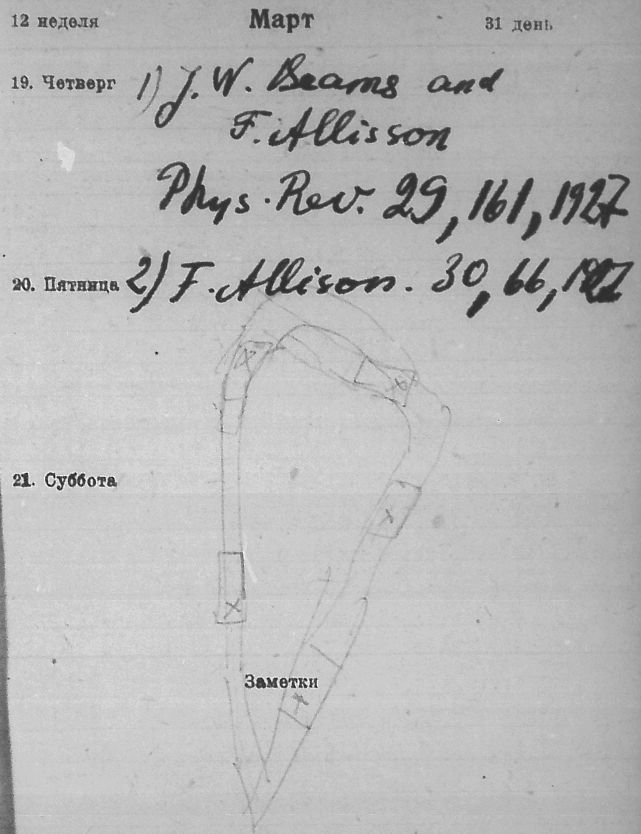 12 неделя Март 31 день
19. Четверг 1) J. W. Beams and
F. Allisson
Phys. Rev. 29, 161, 1927
20. Пятница 2) F. Allison. 30, 66, 1927
21. Суббота
Заметки